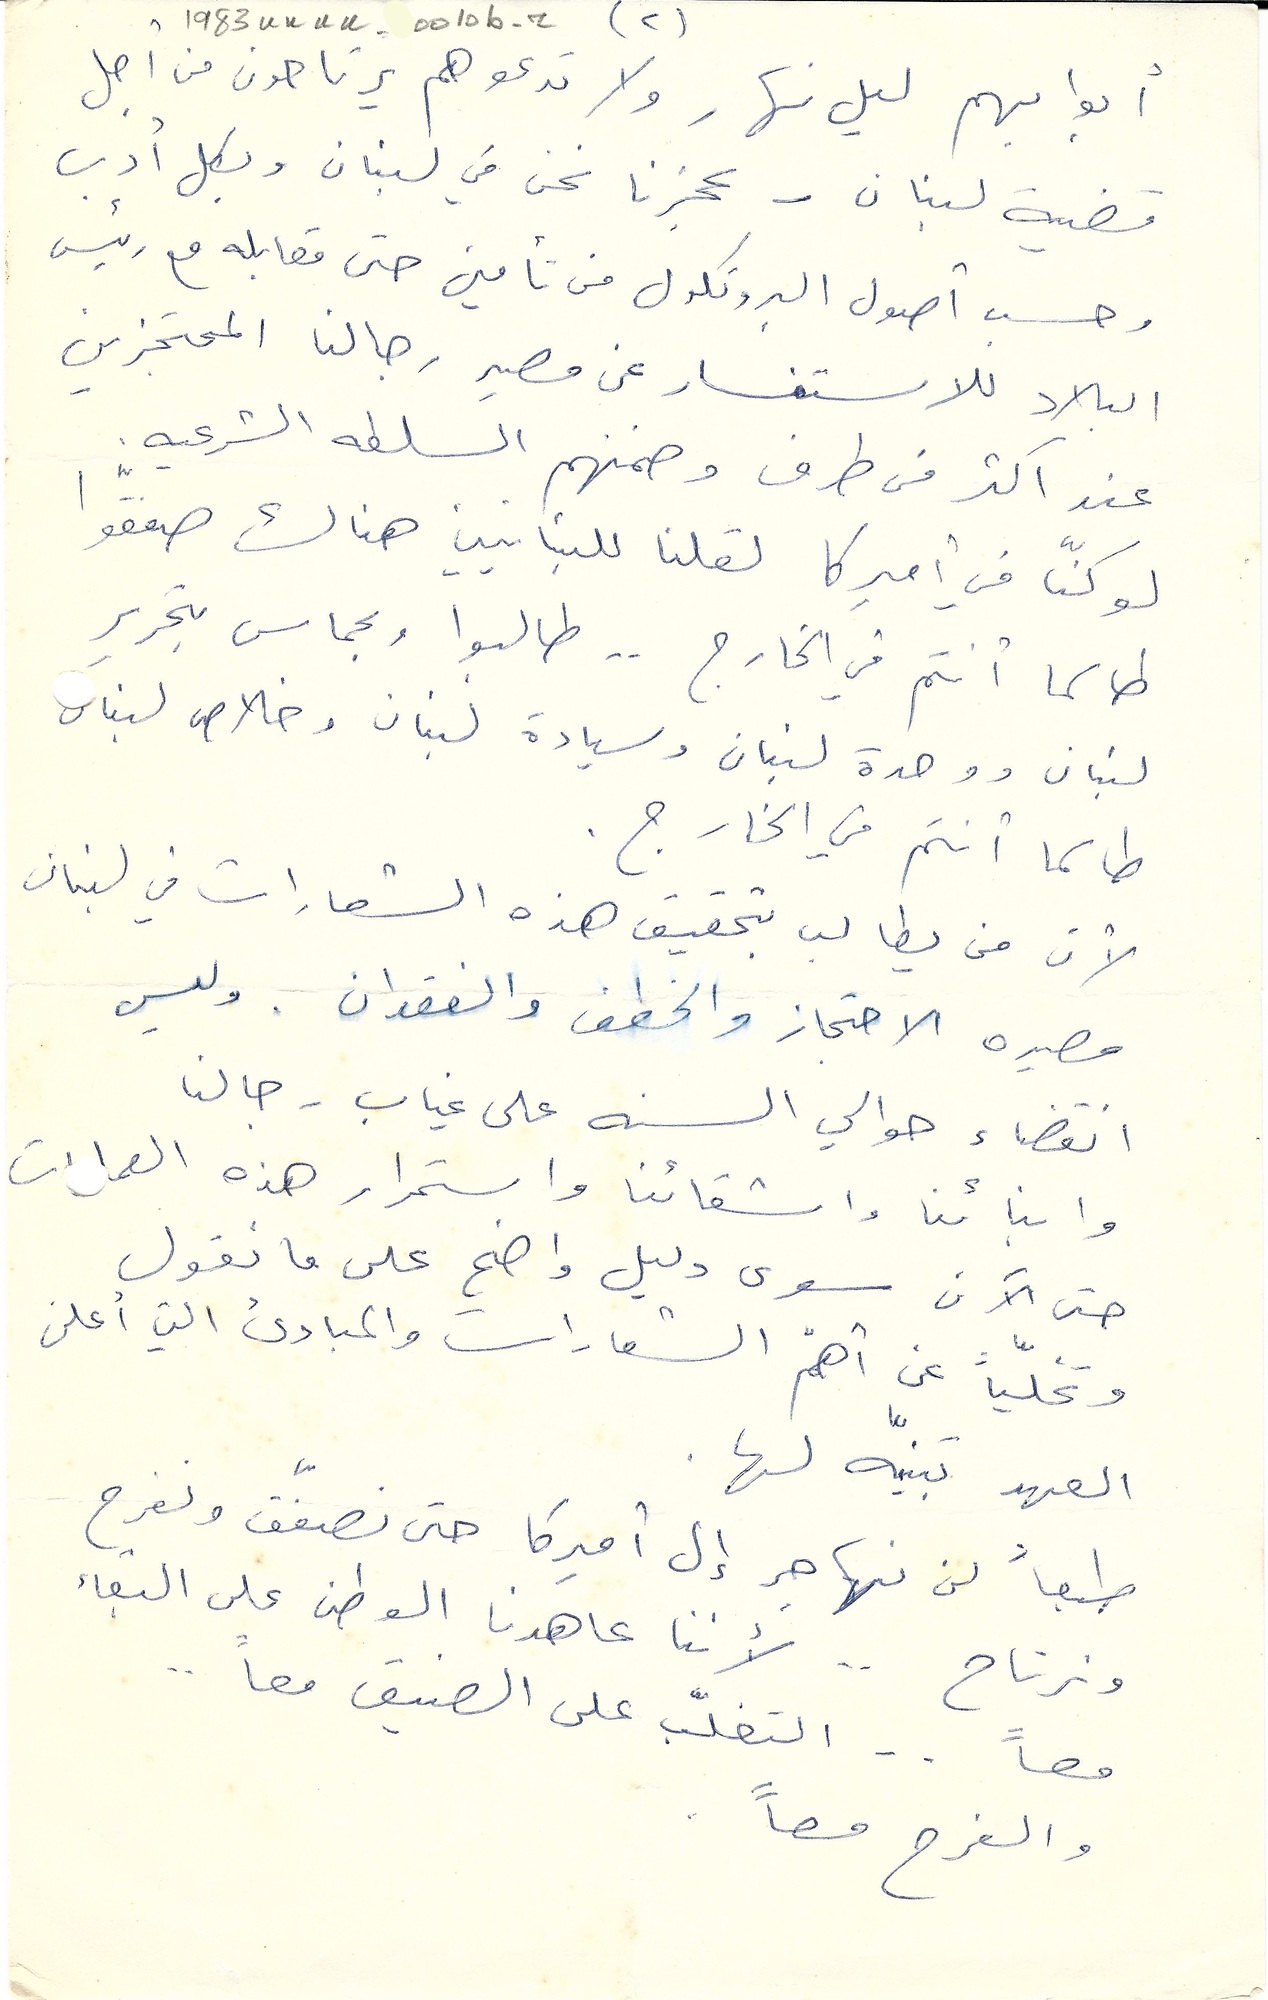 1983uuuu_0010b-2 (٢)
أبوابهم ليل نهار ولا تدعوهم يرتاحون من أجل
قضية لبنان - عجزنا نحن في لبنان وبكل أدب
وحسب أصول البروتكول من تأمين حتى مقابله مع رئيس
البلاد للاستفسار عن مصير رجالنا المحتجزين
عند اكثر من طرف وضمنهم السلطه الشرعيه .
لو كنّا في أميركا لقلنا للبنانيين هناك صفقّوا
طالما أنتم في الخارج .. طالبوا وبحماس بتحرير
لبنان ووحدة لبنان وسيادة لبنان وخلاص لبنان
طالما أنتم في الخارج .
لأن من يطالب بتحقيق هذه الشعارات في لبنان
مصيره الاحتجاز والخطف والفقدان . وليس
انقضاء حوالي السنه على غياب رجالنا
وابنائنا واشقائنا واستمرار هذه
حتى الآن سوى دليل واضح على ما نقول
وتخلّياً عن أهمّ الشعارات والمبادئ التي أعلن
العهد تبنيّه لها .
طبعاً لن نهاجر إلى أميركا حتى نصفّق ونفرح
ونرتاح .. لأننا عاهدنا الوطن على البقاء
معاً .. التغلّب على الضيق معاً ..
والفرح معاً .